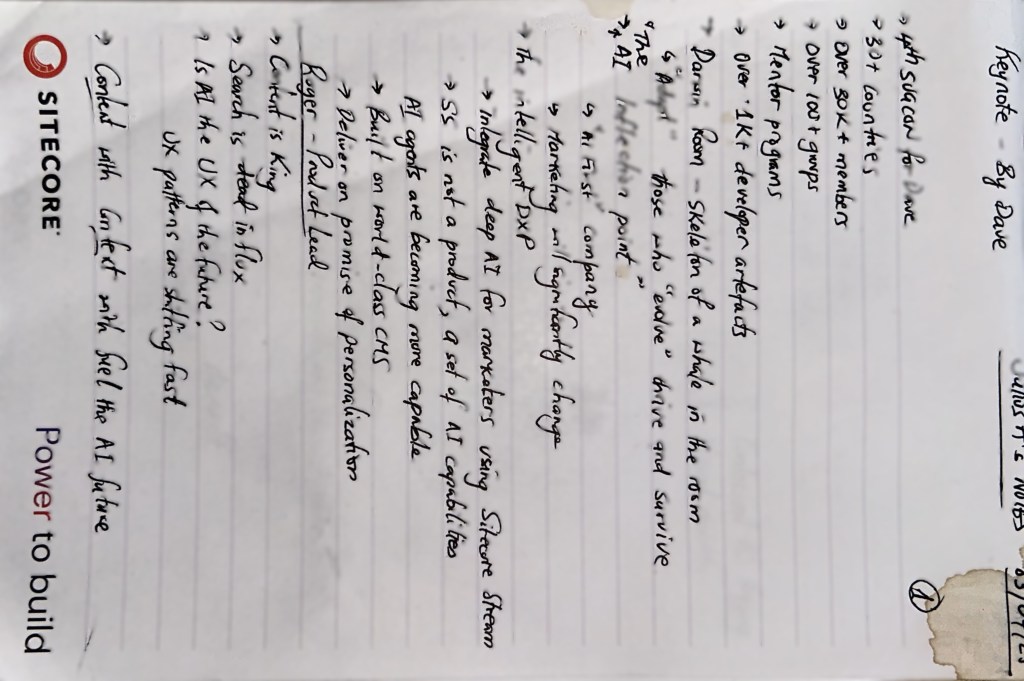 Notes
Keynote - By Dave
①
→ 4th SUGCON for Dave
→ 30+ Countries
→ over 30K+ members
→ over 100+ groups
→ Mentor programs
→ Over 1K+ developer artefacts
→ Darwin Room - Skeleton of a whale in the room
↳ "Adapt" those who "evolve" thrive and survive
→ "The AI Inflection point"
↳ "AI First" company
↳ Marketing will significantly change
→ The intelligent DXP
→ Integrate deep AI for marketers using Sitecore Stream
→ SS is not a product, a set of AI capabilities
AI agents are becoming more capable
→ Built on world-class CMS
→ Deliver on promise of personalization
Roger - Product Lead
→ Content is King
→ Search is dead in flux
→ Is AI the UX of the future?
UX patterns are shifting fast
→ Content with Context with fuel the AI future
SITECORE
Power to build